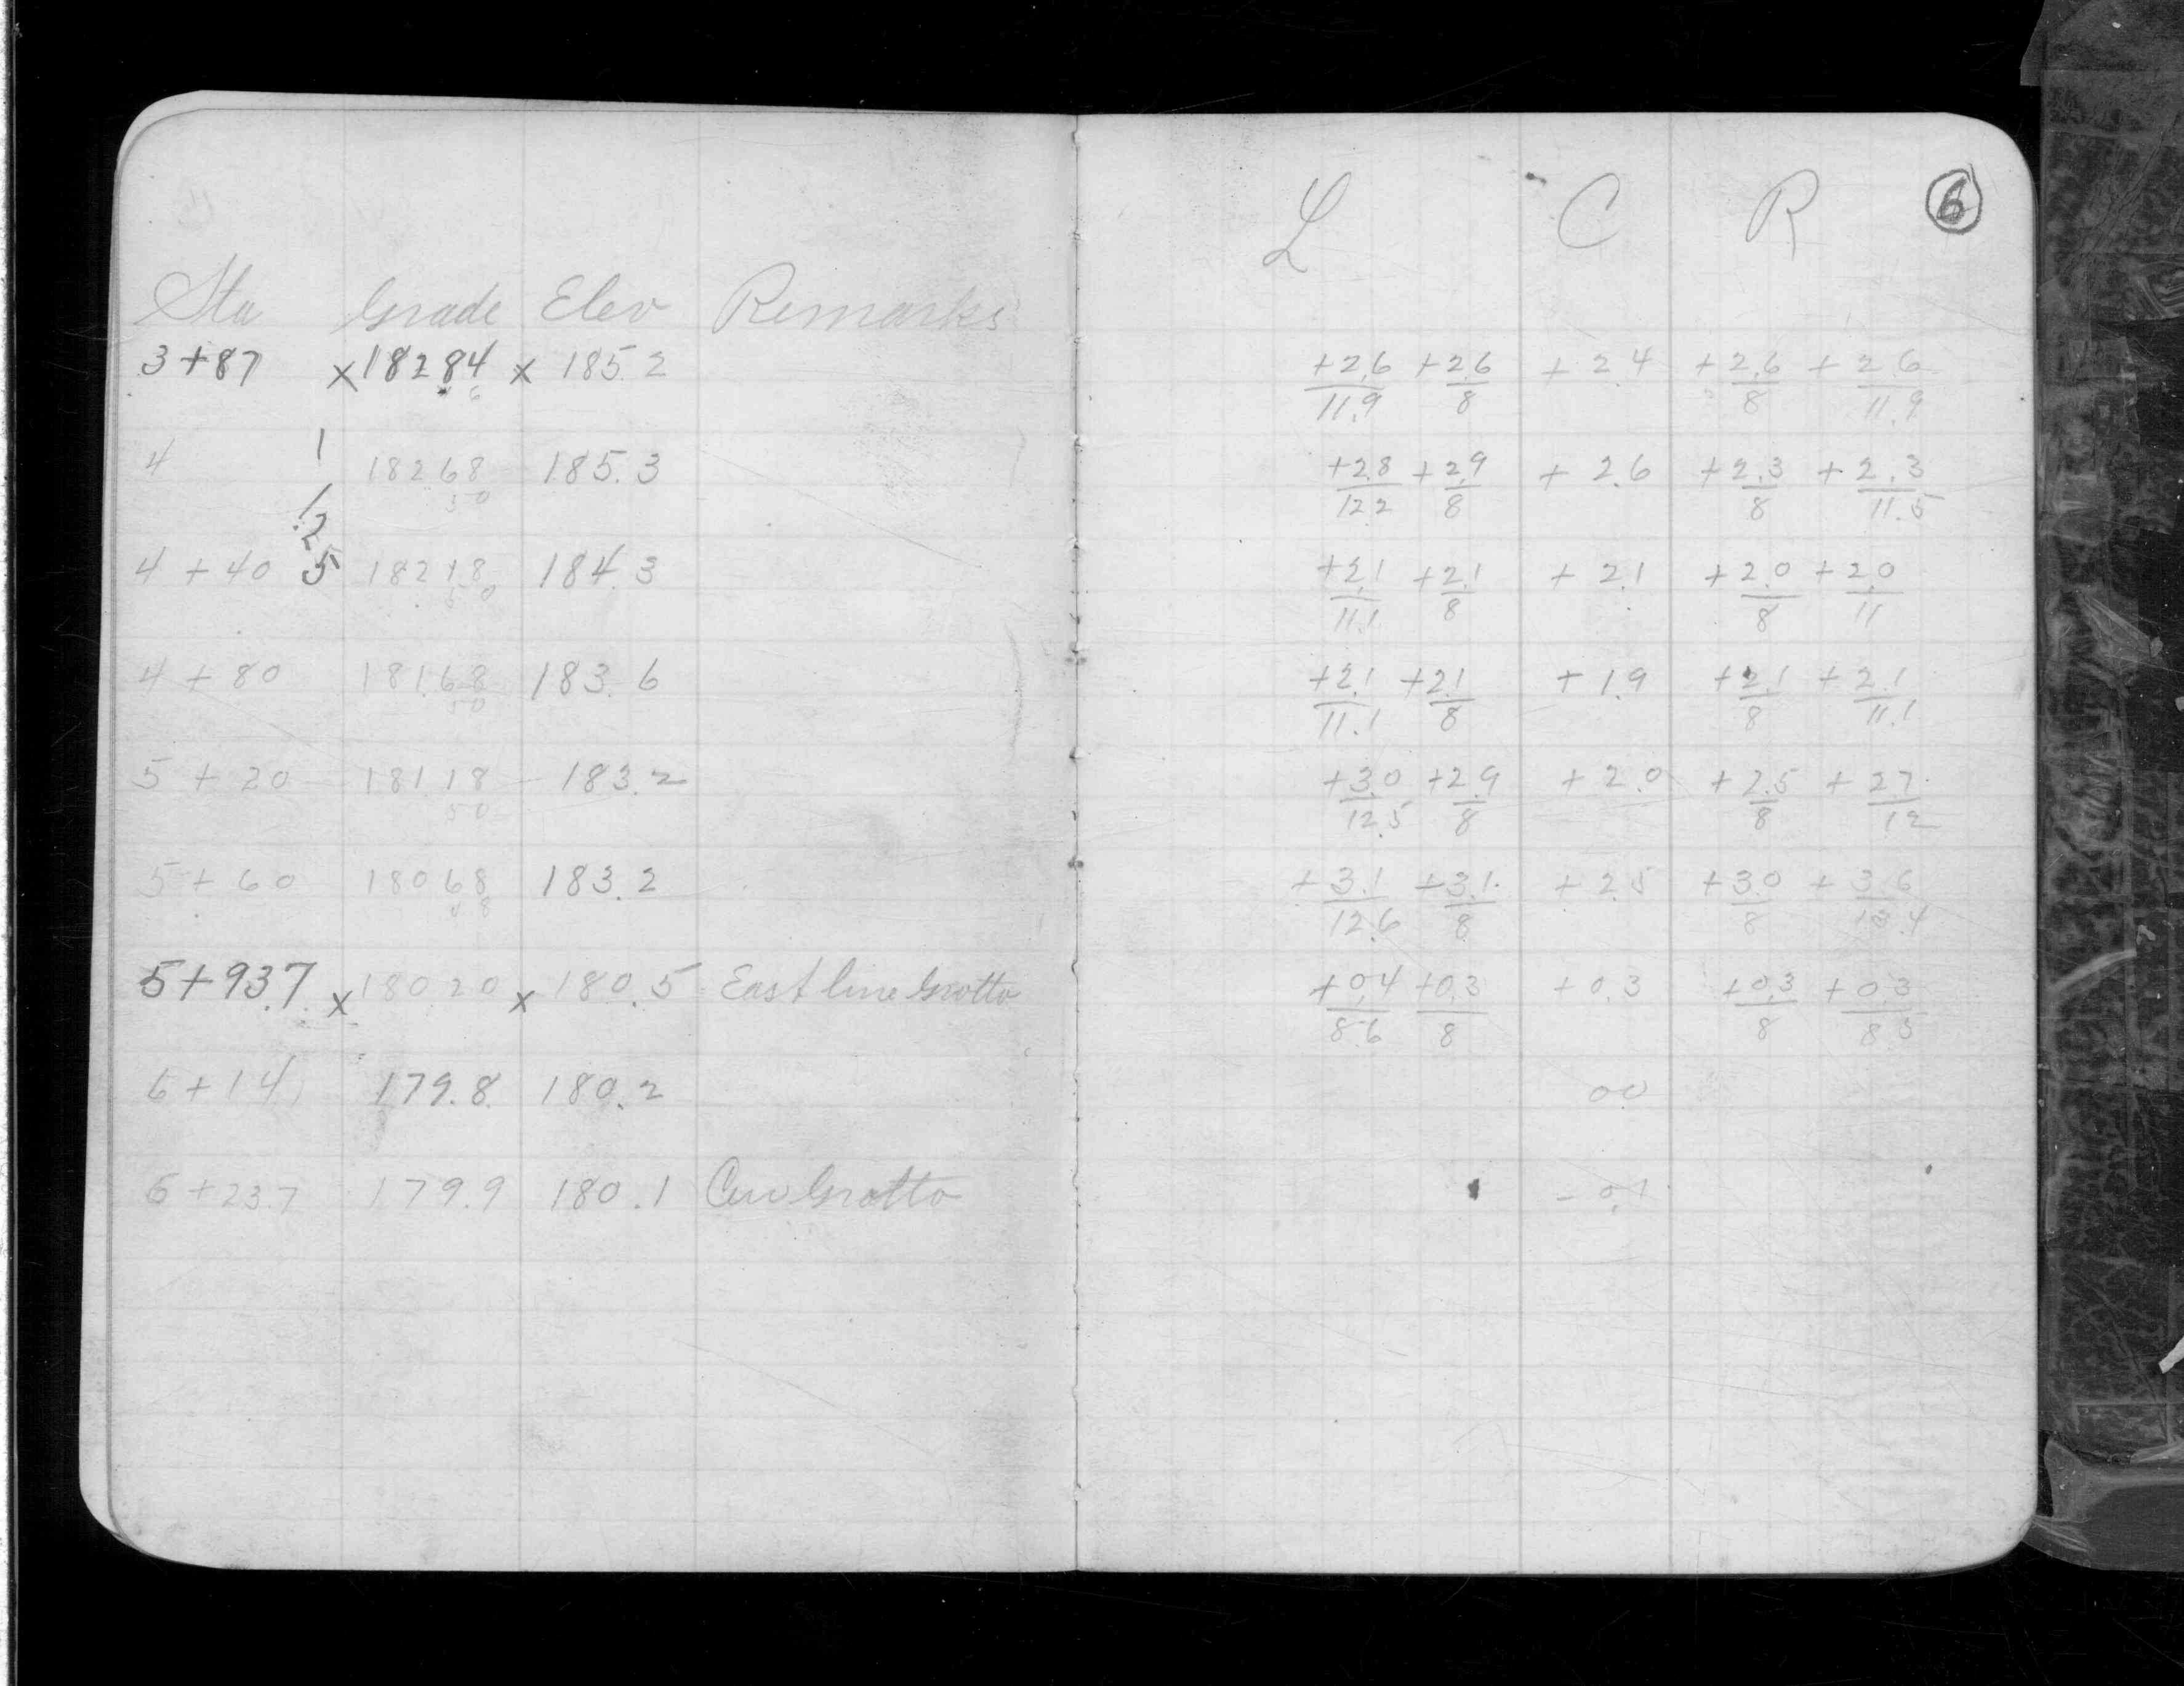 Sta Grade Elev Remarks
3+87 x 182.84 x 185.2
6
4 1 182.68 185.3
50
1.25
4 + 40 182.18 184.3
50
4 + 80 181.68 183.6
50
5 + 20 181.18 183.2
50
5 + 60 180.68 183.2
48
5+93.7 x 180.20 x 180.5 East line Grotto
6+14 179.8 180.2
6+23.7 179.9 180.1 Cen Grotto
6
L C R
+2.6 +2.6 +2.4 +2.6 +2.6
11.9 8 8 11.9
+2.8 +2.9 +2.6 +2.3 +2.3
12.2 8 8 11.5
+2.1 +2.1 +2.1 +2.0 +2.0
11.1 8 8 11
+2.1 +2.1 +1.9 +2.1 +2.1
11.1 8 8 11.1
+3.0 +2.9 +2.0 +2.5 +2.7
12.5 8 8 12
+3.1 +3.1 +2.5 +3.0 +3.6
12.6 8 8 13.4
+0.4 +0.3 +0.3 +0.3 +0.3
8.6 8 8 8.5
0.0
- 0.1